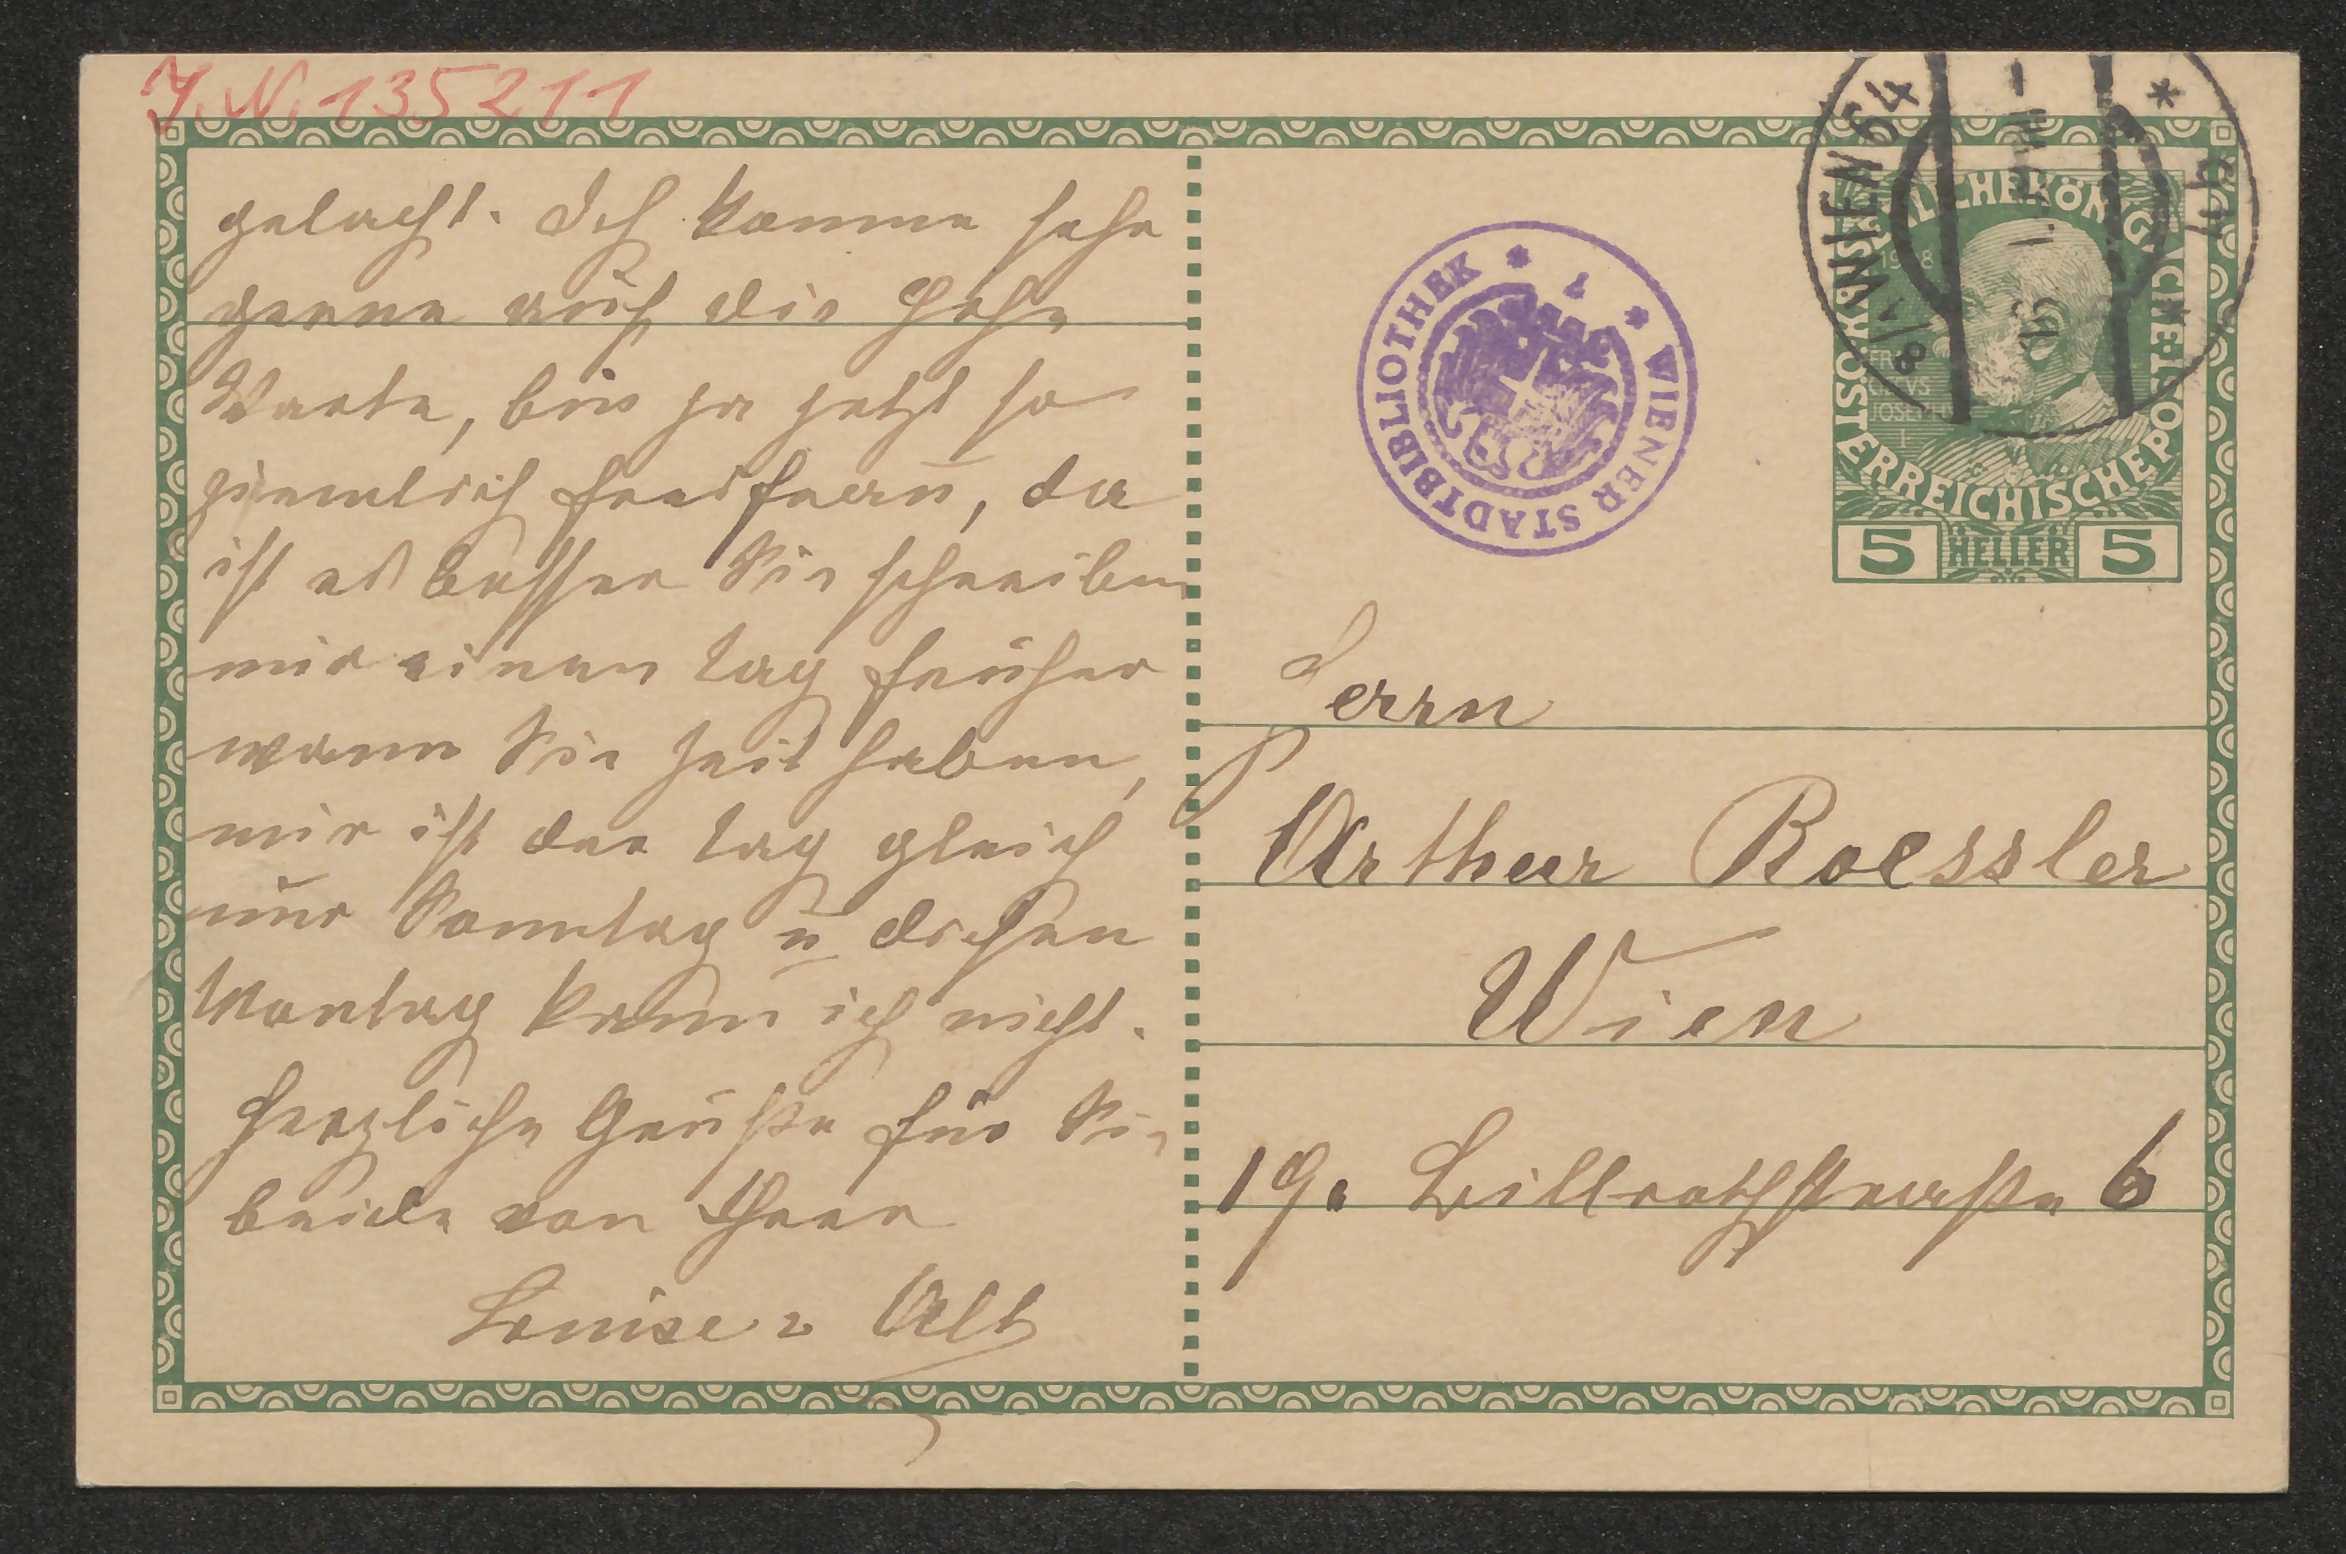 J. N. 135211
gelacht. Ich komme sehr
gerne auf die Hohe
Warte, bin ja jetzt so
ziemlich Freifrau, da
ist es besser Sie schreiben
mir einen Tag früher
wann Sie Zeit haben,
mir ist der Tag gleich
nur Sonntag u diesen
Montag kann ich nicht.
Herzliche Grüße für Sie
beide von Ihrer
Louise v Alt
WIENER STADTBIBLIOTHEK
WIEN 64
8/1
KAISERLICHE KÖNIGLICHE
ÖSTERREICHISCHE POST
5 HELLER 5
Herrn
Arthur Roessler
Wien
19. Billrothstraße 6